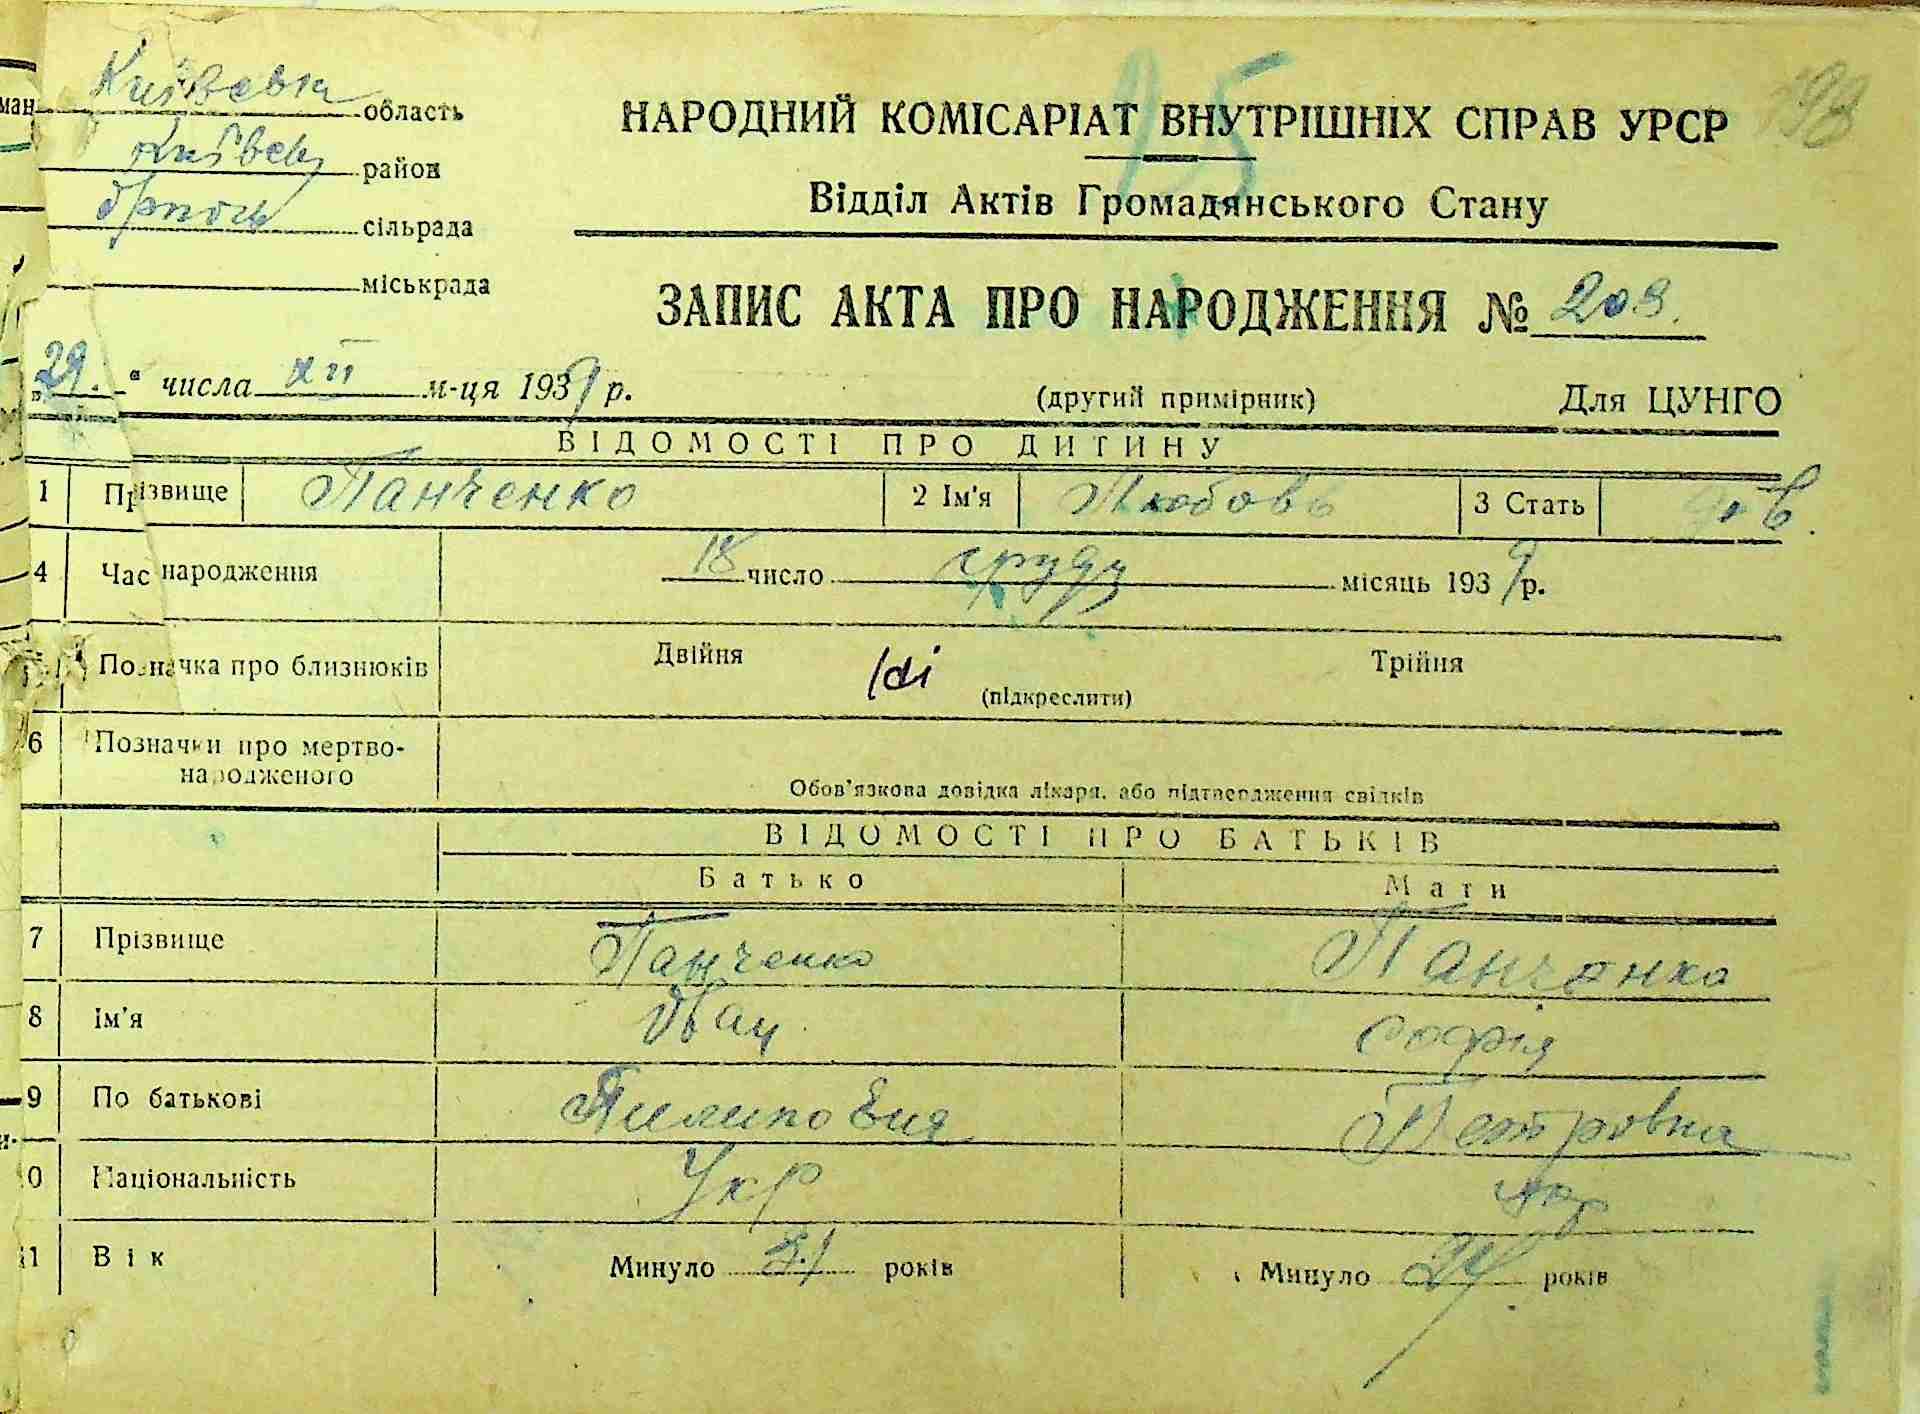 Київська область
Київськ район
сільрада
міськрада
НАРОДНИЙ КОМІСАРІАТ ВНУТРІШНІХ СПРАВ УРСР
98
25
Відділ Актів Громадянського Стану
ЗАПИС АКТА ПРО НАРОДЖЕННЯ №
„29.“ числа XII м-ця 1939 р. (другий примірник) Для ЦУНГО
ВІДОМОСТІ ПРО ДИТИНУ
1 Прізвище Панченко 2 Ім'я Любовь 3 Стать дів.
4 Час народження 18 число грудн місяць 1939 р.
Позначка про близнюків Двійня Трійня
(підкреслити)
6 Позначки про мертво-
народженого
Обов'язкова довідка лікаря, або підтвердження свідків
ВІДОМОСТІ ПРО БАТЬКІВ
Батько Мати
7 Прізвище Панченко Панченко
8 Ім'я Іван Софія
9 По батькові Пилипович Петровна
0 Національність Укр Укр
11 Вік Минуло років Минуло 24 років